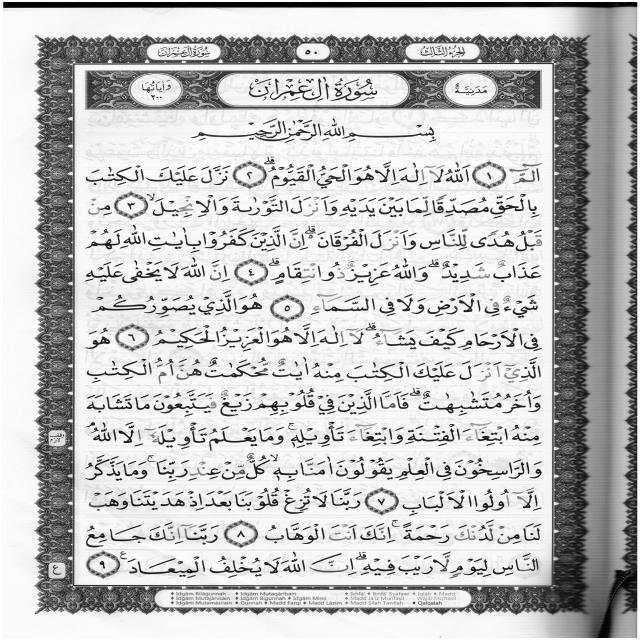 الجزء الثالث
٥٠
سورة آل عمران
مدنية
سورة آل عمران
وآياتها ٢٠٠
بسم الله الرحمن الرحيم
الٓمّٓ ﴿١﴾ اَللّٰهُ لَآ اِلٰهَ اِلَّا هُوَ الْحَيُّ الْقَيُّوْمُۗ ﴿٢﴾ نَزَّلَ عَلَيْكَ الْكِتٰبَ
بِالْحَقِّ مُصَدِّقًا لِّمَا بَيْنَ يَدَيْهِ وَاَنْزَلَ التَّوْرٰىةَ وَالْاِنْجِيْلَۙ ﴿٣﴾ مِنْ
قَبْلُ هُدًى لِّلنَّاسِ وَاَنْزَلَ الْفُرْقَانَۗ اِنَّ الَّذِيْنَ كَفَرُوْا بِاٰيٰتِ اللّٰهِ لَهُمْ
عَذَابٌ شَدِيْدٌۗ وَاللّٰهُ عَزِيْزٌ ذُو انْتِقَامٍۗ ﴿٤﴾ اِنَّ اللّٰهَ لَا يَخْفٰى عَلَيْهِ
شَيْءٌ فِى الْاَرْضِ وَلَا فِى السَّمَاۤءِ ﴿٥﴾ هُوَ الَّذِيْ يُصَوِّرُكُمْ
فِى الْاَرْحَامِ كَيْفَ يَشَاۤءُۗ لَآ اِلٰهَ اِلَّا هُوَ الْعَزِيْزُ الْحَكِيْمُ ﴿٦﴾ هُوَ
الَّذِيْٓ اَنْزَلَ عَلَيْكَ الْكِتٰبَ مِنْهُ اٰيٰتٌ مُّحْكَمٰتٌ هُنَّ اُمُّ الْكِتٰبِ
وَاُخَرُ مُتَشٰبِهٰتٌۗ فَاَمَّا الَّذِيْنَ فِيْ قُلُوْبِهِمْ زَيْغٌ فَيَتَّبِعُوْنَ مَا تَشَابَهَ
مِنْهُ ابْتِغَاۤءَ الْفِتْنَةِ وَابْتِغَاۤءَ تَأْوِيْلِهٖۚ وَمَا يَعْلَمُ تَأْوِيْلَهٗٓ اِلَّا اللّٰهُ
وَالرَّاسِخُوْنَ فِى الْعِلْمِ يَقُوْلُوْنَ اٰمَنَّا بِهٖۙ كُلٌّ مِّنْ عِنْدِ رَبِّنَاۚ وَمَا يَذَّكَّرُ
اِلَّآ اُولُوا الْاَلْبَابِ ﴿٧﴾ رَبَّنَا لَا تُزِغْ قُلُوْبَنَا بَعْدَ اِذْ هَدَيْتَنَا وَهَبْ
لَنَا مِنْ لَّدُنْكَ رَحْمَةًۚ اِنَّكَ اَنْتَ الْوَهَّابُ ﴿٨﴾ رَبَّنَآ اِنَّكَ جَامِعُ
النَّاسِ لِيَوْمٍ لَّا رَيْبَ فِيْهِۗ اِنَّ اللّٰهَ لَا يُخْلِفُ الْمِيْعَادَࣖ ﴿٩﴾
ع
♦ Idgām Bilāgunnah ♦ Idgām Mutaqāribain
♦ Idgām Mutajānisain ♦ Idgām Bigunnah ♦ Idgām Mimi
♦ Idgām Mutamāśilain ♦ Gunnah ♦ Madd Farqi ♦ Madd Lāzim ♦ Madd Silah Tawīlah ♦ Qalqalah